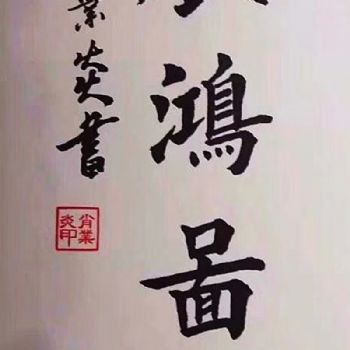 鴻啚
業炎書
肖業
炎印